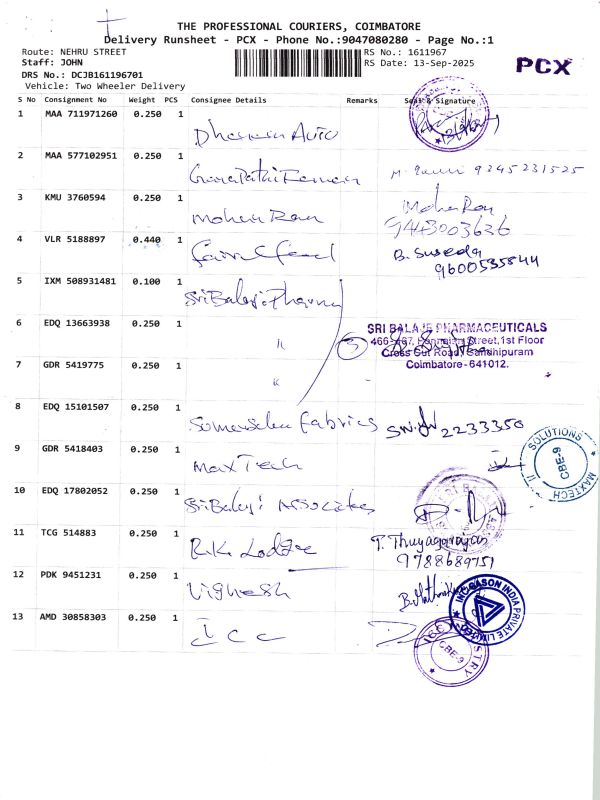 THE PROFESSIONAL COURIERS, COIMBATORE
Delivery Runsheet - PCX - Phone No.:9047080280 - Page No.:1
Route: NEHRU STREET
RS No.: 1611967
Staff: JOHN
RS Date: 13-Sep-2025
PCX
DRS No.: DCJB161196701
Vehicle: Two Wheeler Delivery
S No Consignment No Weight PCS Consignee Details Remarks Seal & Signature
1 MAA 711971260 0.250 1 Auto
2 MAA 577102951 0.250 1 9245231525
3 KMU 3760594 0.250 1 Mohan Ram Mohan Ram
9443003636
4 VLR 5188897 0.440 1 B. Suseela
9600535844
5 IXM 508931481 0.100 1 Sri Balaji Pharma
6 EDQ 13663938 0.250 1 " 3 SRI BALAJI PHARMACEUTICALS
Street, 1st Floor
Cross Cut Road, Gandhipuram
Coimbatore - 641012.
7 GDR 5419775 0.250 1 "
8 EDQ 15101507 0.250 1 Fabrics 2233350
9 GDR 5418403 0.250 1 MaxTech
MAXTECH SOLUTIONS CBE-9
10 EDQ 17802052 0.250 1 Sri Balaji Associates
11 TCG 514883 0.250 1 R.K. Lodge T. Thuyagarajan
9788689751
12 PDK 9451231 0.250 1 Vighesh
INGASON INDIA PRIVATE LIMITED
13 AMD 30858303 0.250 1 Icc
CBE-9